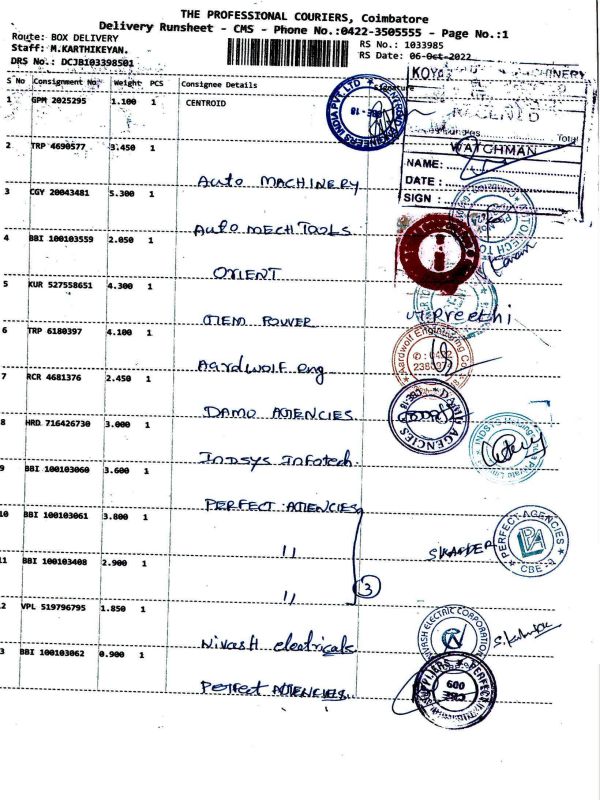 THE PROFESSIONAL COURIERS, Coimbatore
Delivery Runsheet - CMS - Phone No.:0422-3505555 - Page No.:1
Route: BOX DELIVERY
Staff: M.KARTHIKEYAN.
DRS No.: DCJB103398501
RS No.: 1033985
RS Date: 06-Oct-2022
S No Consignment No. Weight PCS Consignee Details Signature
1 GPM 2025295 1.100 1 CENTROID
2 TRP 4690577 3.450 1
Auto MACHINERY
3 CGY 20043481 5.300 1
Auto MECH TOOLS
4 BBI 100103559 2.050 1
ORIENT
5 KUR 527558651 4.300 1
GEM POWER
6 TRP 6180397 4.100 1
Aardwolf eng
7 RCR 4681376 2.450 1
DAMO AGENCIES
8 HRD 716426730 3.000 1
INDSYS INFOTECH
9 BBI 100103060 3.600 1
PERFECT AGENCIES
10 BBI 100103061 3.800 1
11
11 BBI 100103408 2.900 1
11
3
12 VPL 519796795 1.850 1
Nivash electricals
13 BBI 100103062 0.900 1
Perfect AGENCIES
MACHINERY
Total
WATCHMAN
NAME:
DATE :
SIGN :
M Preethi
Aardwolf Engineering
0422
AGENCIES
PERFECT AGENCIES
CBE
NIVASH ELECTRIC CORPORATION
600